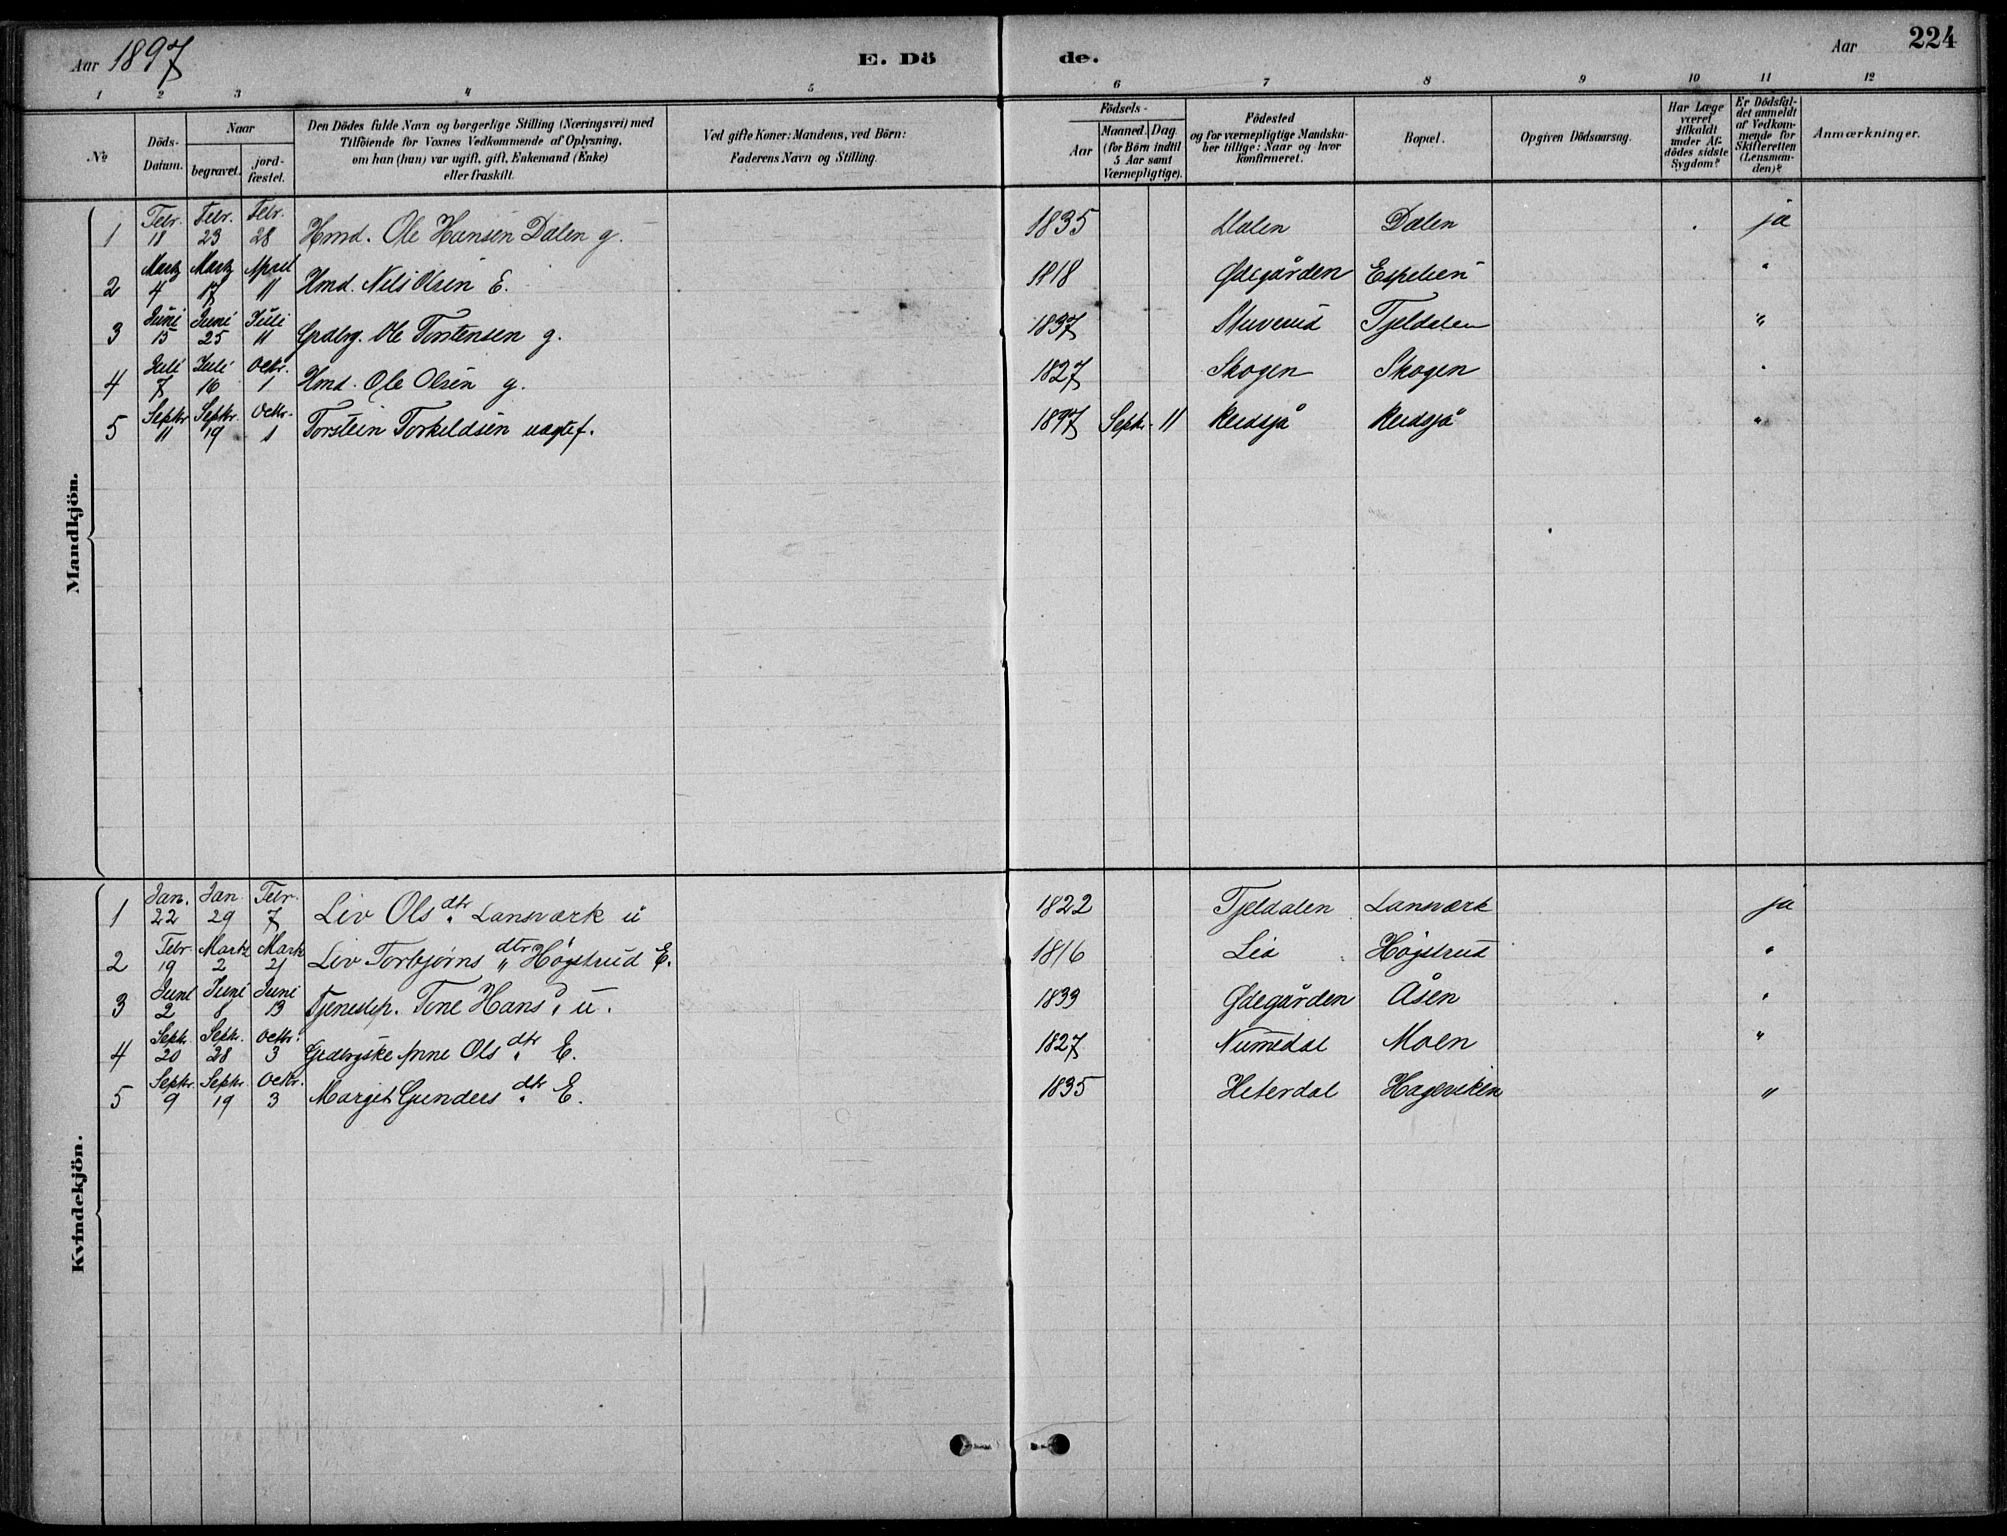 Aar 1897
E. Dö
de.
Aar
224
1 2 3 4 5 6 7 8 9 10 11 12
№
Döds-Datum.
Naar
begravet.
jord-fæstet.
Den Dödes fulde Navn og borgerlige Stilling (Næringsvei) med
Tilföiende for Voxnes Vedkommende af Oplysning,
om han (hun) var ugift, gift, Enkemand (Enke)
eller fraskilt.
Ved gifte Koner: Mandens, ved Börn:
Faderens Navn og Stilling.
Födsels-
Aar
Maaned. Dag.
(for Börn indtil
5 Aar samt
Værnepligtige).
Födested
og for værnepligtige Mandska-
ber tillige: Naar og hvor
konfirmeret.
Bopæl.
Opgiven Dödsaarsag.
Har Læge
været
tilkaldt
under Af-
dödes sidste
Sygdom?
Er Dödsfal-
det anmeldt
af Vedkom-
mende for
Skifteretten
(Lensman-
den)?
Anmærkninger.
Mandkjön.
1 Febr. 18 Febr. 23 Febr. 28 Hmd. Ole Hansen Dalen g. 1835 Dalen Dalen ja
2 Martz 4 Martz 17 April 11 Hmd. Nels Olsen E. 1818 Ødegården Espelien "
3 Juni 15 Juni 25 Juli 11 Grdbrg. Ole Torstensen g. 1837 Tjeldalen "
4 Juli 7 Juli 16 Octr. 1 Hmd. Ole Olsen g. 1827 Skogen Skogen "
5 Septr 11 Septr. 19 Octr. 1 Torstein Torkildsen uægtef. 1897 Septr. 11 Reidsjå Reidsjå "
Kvindekjön.
1 Jan. 22 Jan 29 Febr. 7 Liv Olsdtr. Lansværk u 1822 Tjeldalen Lansværk ja
2 Febr 19 Martz 2 Martz 21 Liv Torbjørnsdtr Högstrud E. 1816 Lid Högstrud "
3 Juni 2 Juni 8 Juni 13 Tjenestep. Tone Hansd. u. 1833 Ødegården Åsen "
4 Septr. 20 Septr. 28 Octr. 3 Anne Olsdtr. E. 1827 Numedal Moen "
5 Septr. 9 Septr. 19 Octr. 3 Margit Gundersdtr. E. 1835 Heterdal Hageviken "